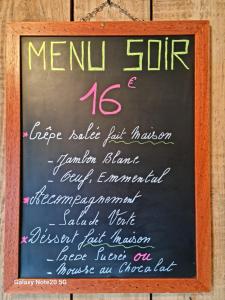 MENU SOIR
16€
* Crêpe salée fait Maison
- Jambon Blanc
- Oeuf, Emmental
* Accompagnement
- Salade Verte
* Déssert fait Maison
- Crepe Sucrée ou
- Mousse au Chocolat
Galaxy Note20 5G